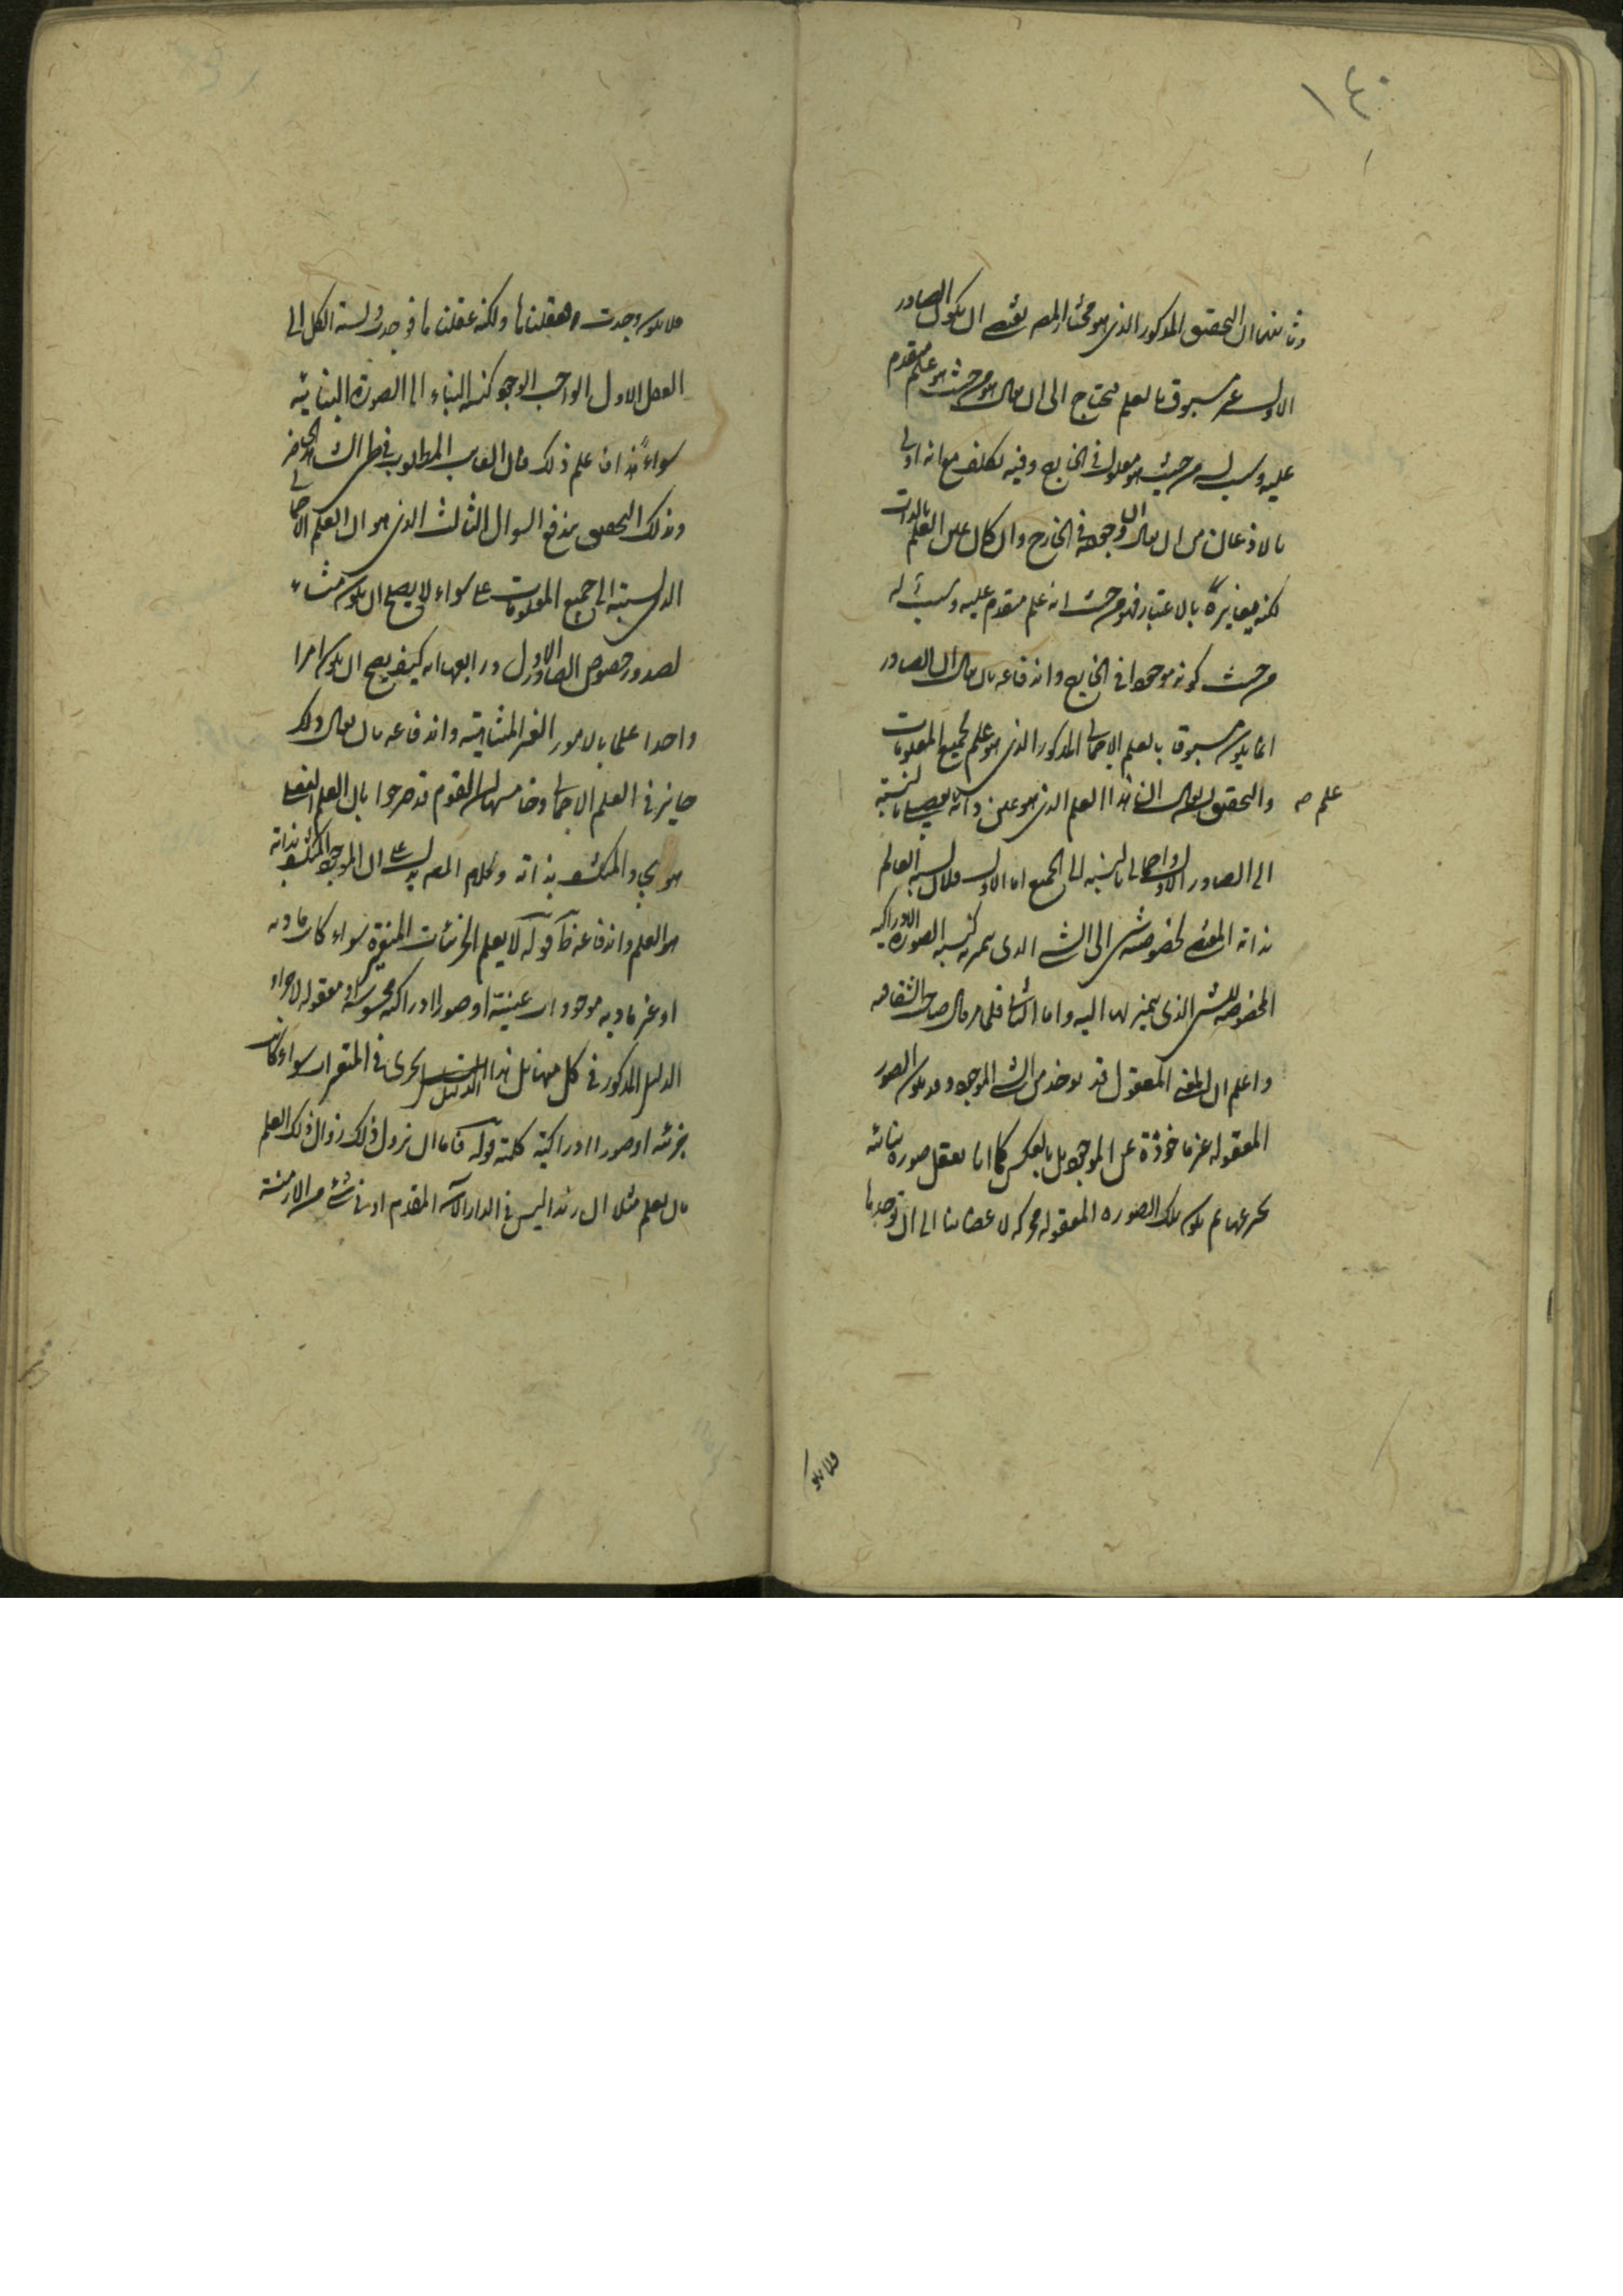 ١٤٠
وثانيها ان التحقيق المذكور الذى هو مختار المصـ يقتضى ان يكون الصادر
الاول غير مسبوق بالعلم فيحتاج الى ان يقال هو من حيث هو علم مقدم
عليه وسبب له من حيث هو معلول فى الخارج وفيه تكلف مع انه اولى
بالاذعان من ان يقال ان وجوده فى الخارج وان كان عين العلم بالذات
لكنه يغايره بالاعتبار فهو من حيث انه علم متقدم عليه وسبب له
من حيث كونه موجودا فى الخارج واندفاعه بان يقال ان الصادر
انما يكون مسبوقا بالعلم الاجمالى المذكور الذى هو علم بجميع المعلومات
والتحقيق ان يقال ان هذا العلم الذى هو عين ذاته تفصيلى بالنسبة
علم صح
الى الصادر الاول واجمالى بالنسبة الى الجميع اما الاول فلان نسبة العالم
بذاته المقتضى لخصوصية شئ الى الشئ الذى يميز به كنسبة الصورة الادراكية
المخصوصة للشئ الذى يتميز بها اليه واما الثانى فلما قال صاحب الشفا فيه
واعلم ان المعنى المعقول قد يؤخذ من الشئ الموجود وقد يكون الصور
المعقولة غير ماخوذة عن الموجود بل بالعكس كما انا نعقل صورة بنائية
نخترعها ثم يكون تلك الصورة المعقولة محركة لاعضائنا الى ان نوجدها
فلا يكون
فلا يكون وجدت فعقلناها ولكنه عقلناها فوجدت ونسبة الكل الى
العقل الاول الواجب الوجود كنسبة البناء الى الصورة البنائية
سواء هذا فان علم ذلك قال الغائب المطلوب فى طى الشاهد الحاضر
وبذلك التحقيق يندفع السؤال الثالث الذى هو ان العلم الاجمالى
الذى نسبته الى جميع المعلومات على سواء لا يصلح ان يكون منشاء
لصدور خصوص الصادر الاول ورابعها انه كيف يصح ان يكون امرا
واحدا علما بالامور الغير المتناهية واندفاعه بان يقال ذلك
جايز فى العلم الاجمالى وخامسها ان القوم قد صرحوا بان العلم الفعلى
هو والمنكشف بذاته وكلام المصـ يدل على ان الموجود المنكشف بذاته
هو العلم واندفاعه ظـ قوله لا يعلم الجزئيات المتغيرة سواء كان مادية
او غير مادية موجودات عينية او صورا ادراكية محسوسة او معقولة لاجراء
الدليل المذكور فى كل منها بل هذا الدليل يجرى فى المتغيرات سواء كانت
جزئية او صورا ادراكية كلية قوله فاما ان يزول ذلك زوال ذلك العلم
بان يعلم مثلا ان زيدا ليس فى الدار الآن المقدم او فى شئ من الازمنة